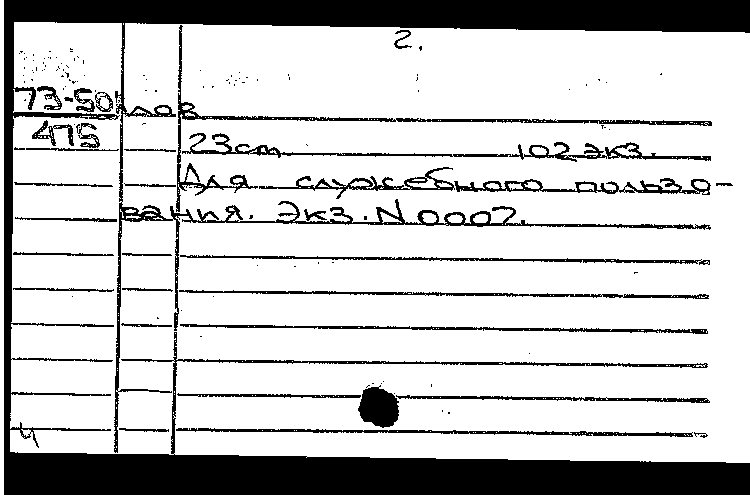 2.
73-50 глав
475 23cm 102 экз.
Для служебного пользо-
вания. Экз. N 0002.
ч